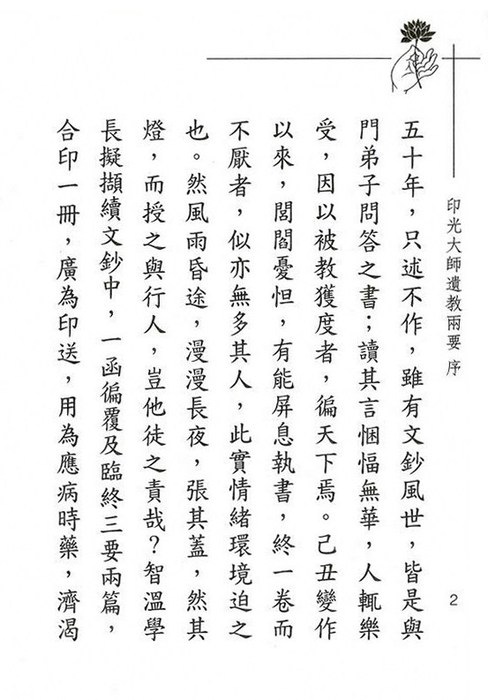 印光大師遺教兩要 序
五十年，只述不作，雖有文鈔風世，皆是與
門弟子問答之書；讀其言悃愊無華，人輒樂
受，因以被教獲度者，徧天下焉。己丑變作
以來，閭閻憂怛，有能屏息執書，終一卷而
不厭者，似亦無多其人，此實情緒環境迫之
也。然風雨昏途，漫漫長夜，張其蓋，然其
燈，而授之與行人，豈他徒之責哉？智溫學
長擬擷續文鈔中，一函徧覆及臨終三要兩篇，
合印一冊，廣為印送，用為應病時藥，濟渴
2